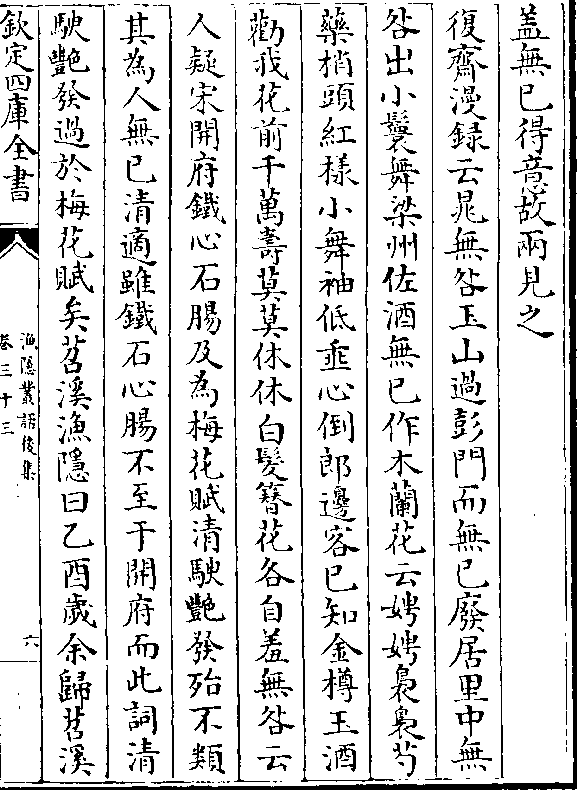 盖無已得意故兩見之
復齋漫録云晁無咎玉山過彭門而無已廢居里中無
咎出小鬟舞梁州佐酒無已作木蘭花云娉娉裊裊芍
藥梢頭紅様小舞袖低垂心倒郎邊客已知金樽玉酒
勸我花前千萬壽莫莫休休白髪簪花各自羞無咎云
人疑宋開府鐵心石腸及為梅花賦清駛艷發殆不類
其為人無已清適雖鐵石心腸不至于開府而此詞清
駛艷發過於梅花賦矣苕溪漁隱曰乙酉歲余歸苕溪
欽定四庫全書
漁隱叢話後集
卷三十三
六